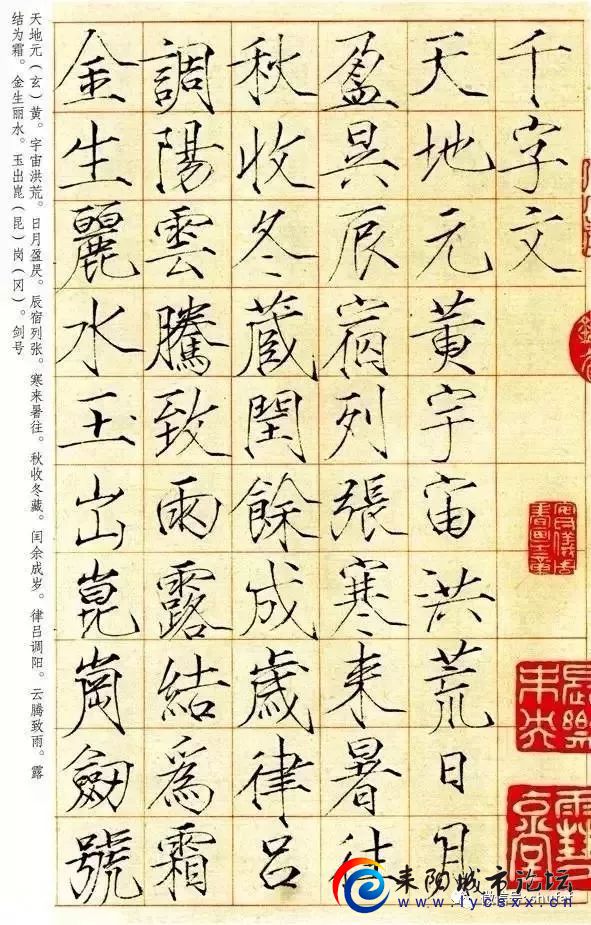 千字文
天地元黄宇宙洪荒日月
盈昃辰宿列張寒来暑往
秋收冬蔵閏餘成歲律吕
調陽雲騰致雨露結為霜
金生麗水玉出崑崗劒號
天地元（玄）黄。宇宙洪荒。日月盈昃。辰宿列张。寒来暑往。秋收冬藏。闰余成岁。律吕调阳。云腾致雨。露
结为霜。金生丽水。玉出崑（昆）岗（冈）。剑号
耒阳城市论坛
www.lycsxx.cn.com